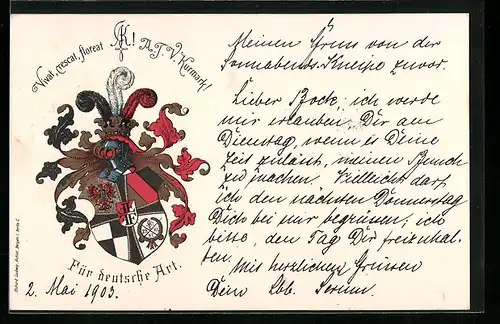 Vivat, crescat, floreat
A.T.V. Kurmark!
Für deutsche Art.
2. Mai 1903.
Meinen Gruss von der
Sonnabends-Kneipe zuvor.
Lieber Bock; ich werde
mir erlauben Dir am
Dienstag, wenn es Deine
Zeit zulässt, meinen Besuch
zu machen. Vielleicht darf
ich den nächsten Donnerstag
Dich bei mir begrüssen; ich
bitte, den Tag Dir freizuhal-
ten.
Mit herzlichen Grüssen
Dein Lbb.